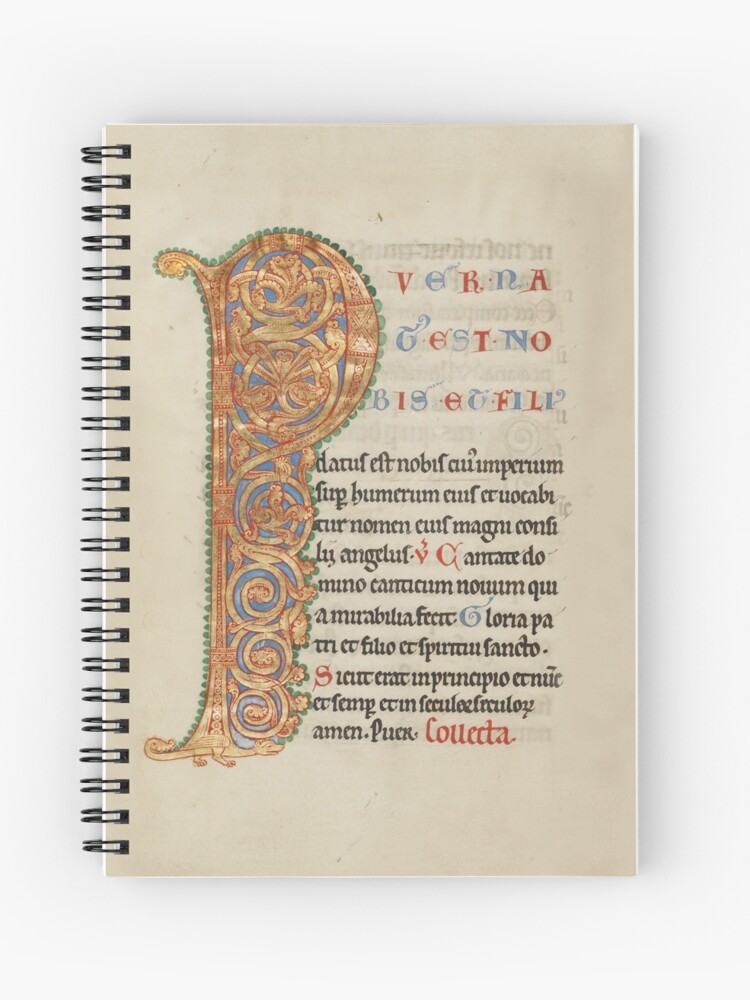 P VER·NA
T·EST·NO
BIS·ET·FILI
datus est nobis cuiꝰ imperium
suꝑ humerum eius et uocabi
tur nomen eius magni consi
lii angelus· v̄ Cantate do
mino canticum nouum qui
a mirabilia fecit Gloria pa
tri et filio et spiritui sancto·
Sicut erat in principio et nūc
et semꝑ et in secula seculoꝝ
amen. Puer. Collecta.